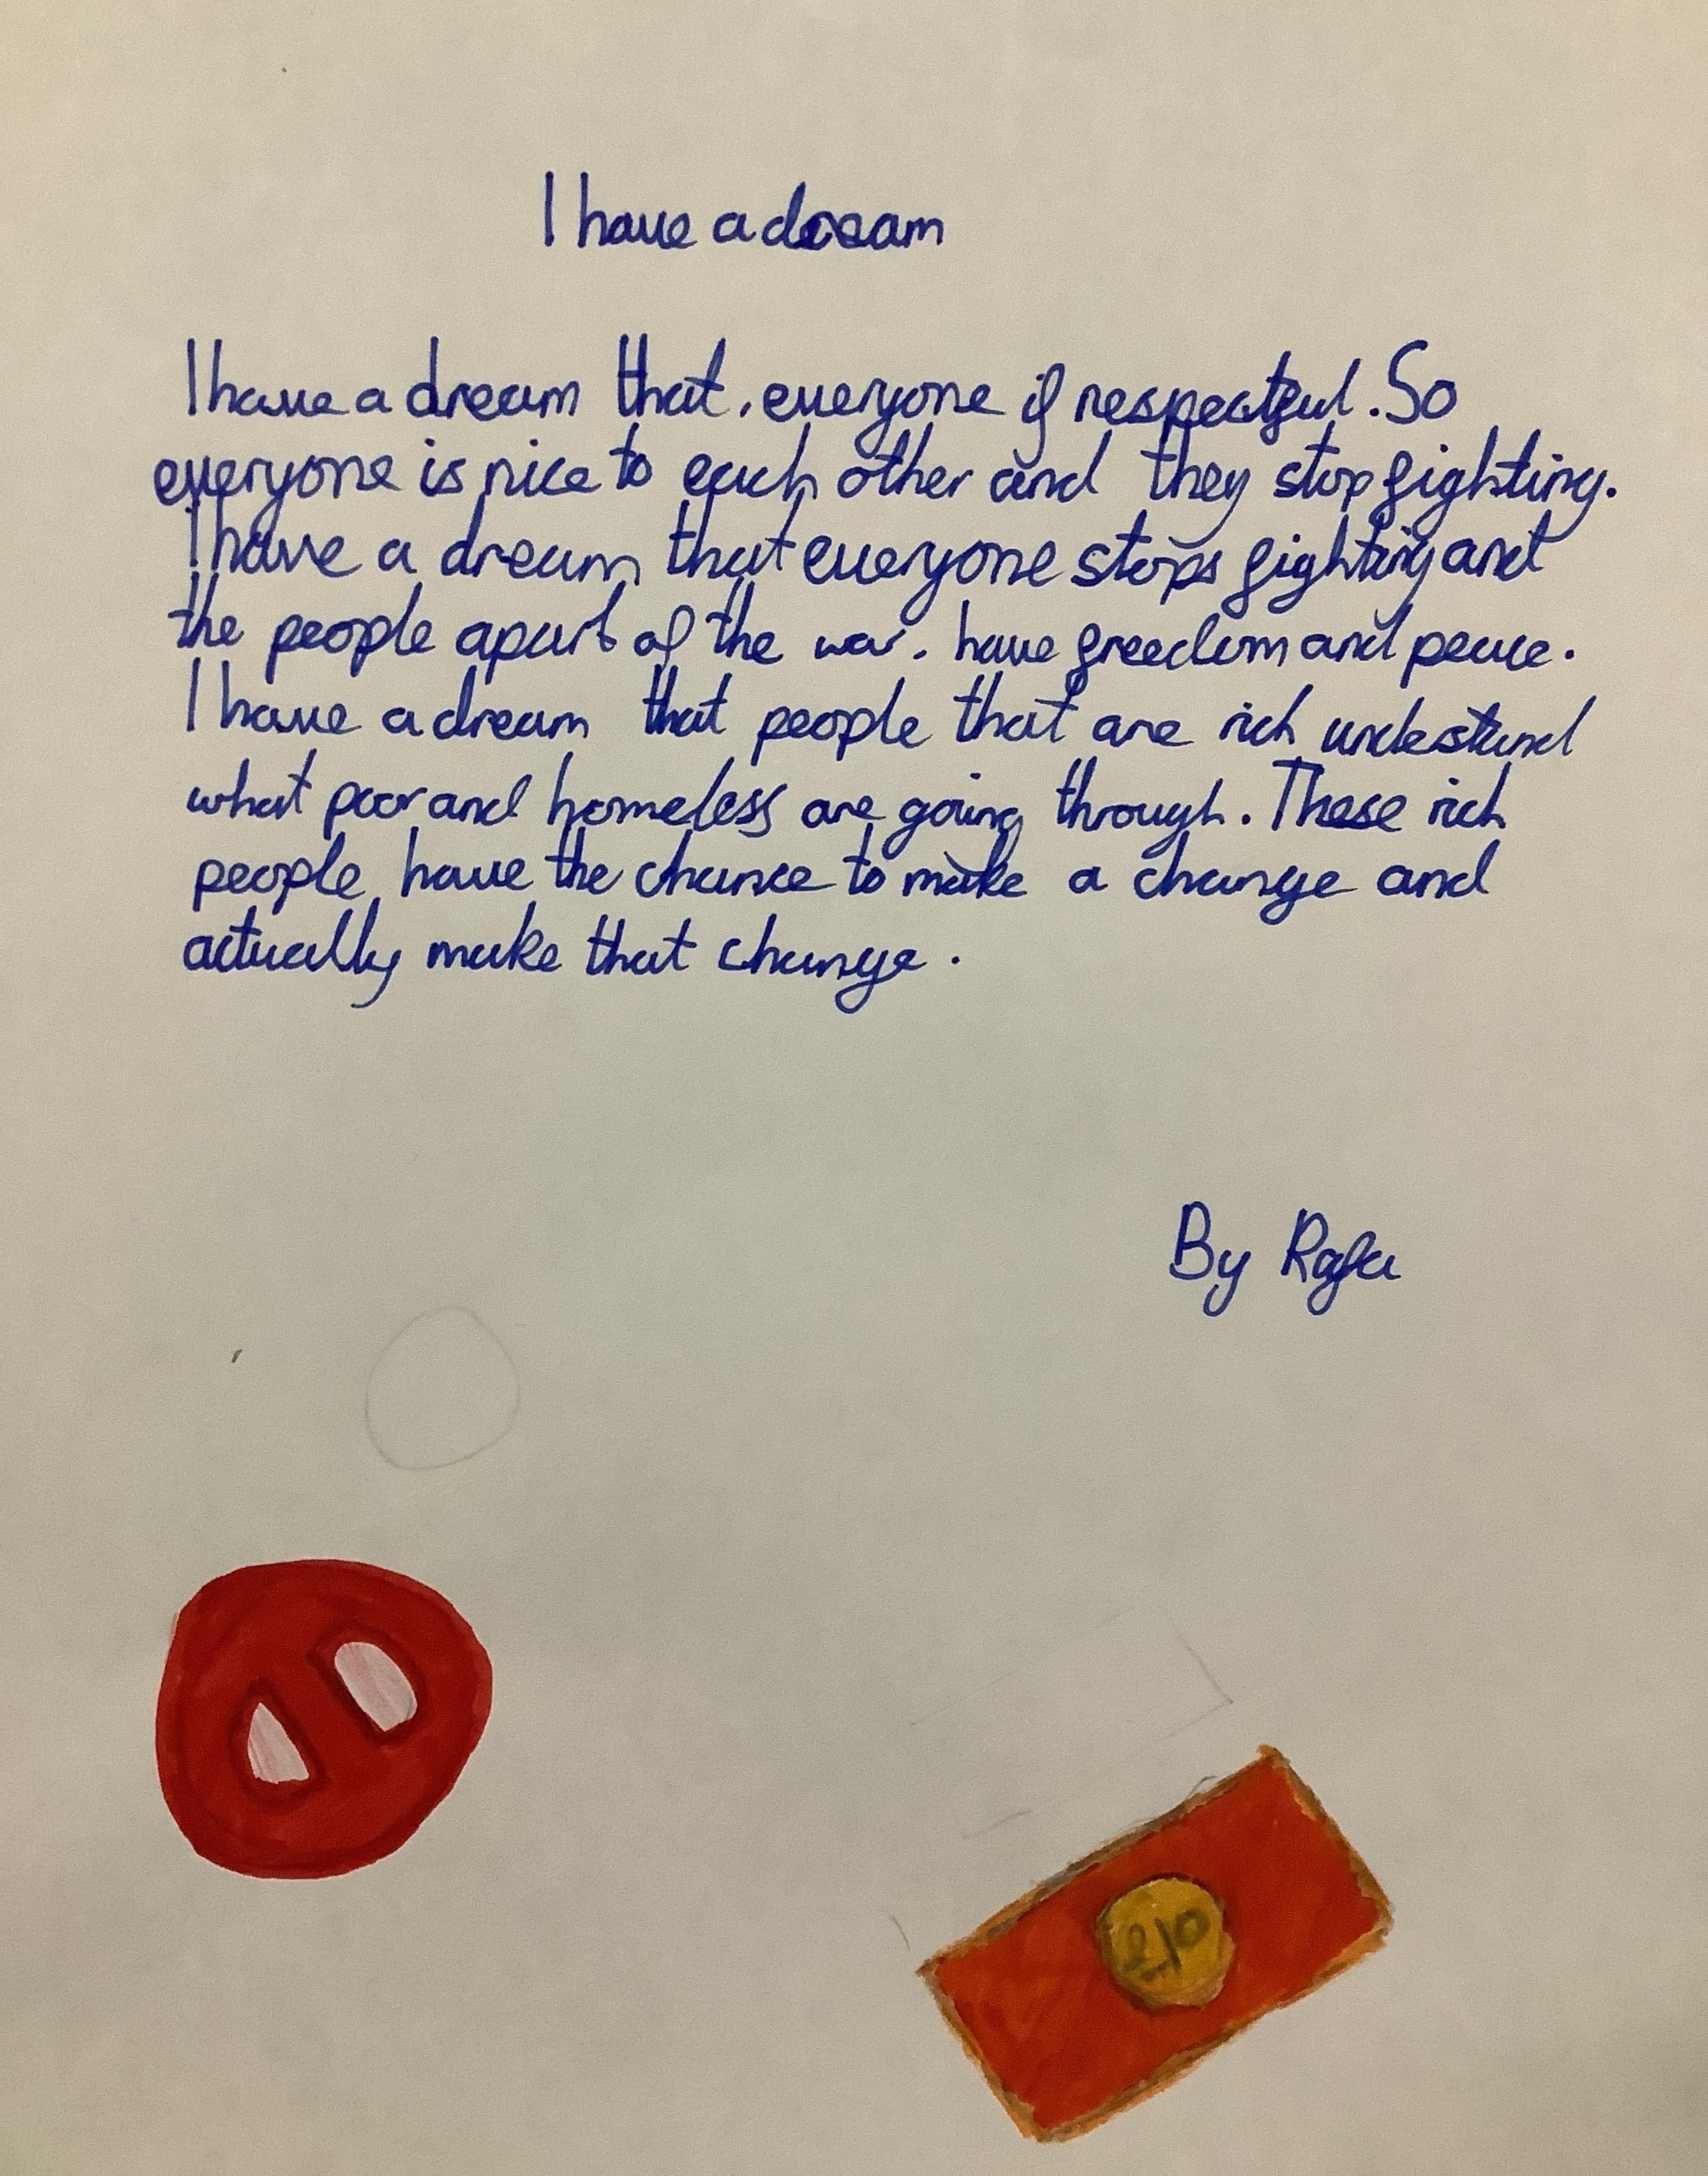 I have a dream
I have a dream that. everyone if respectful. So
everyone is nice to each other and they stop fighting.
I have a dream that everyone stops fighting and
the people apart of the war. have freedom and peace.
I have a dream that people that are rich undestand
what poor and homeless are going through. These rich
people have the chance to make a change and
actually make that change.
By Rafa
£10